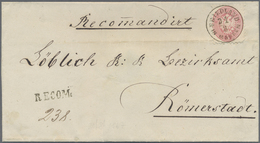 Recom̅andirt
Löblich K: K Bezirksamt
RECOM.
238
Römerstadt.